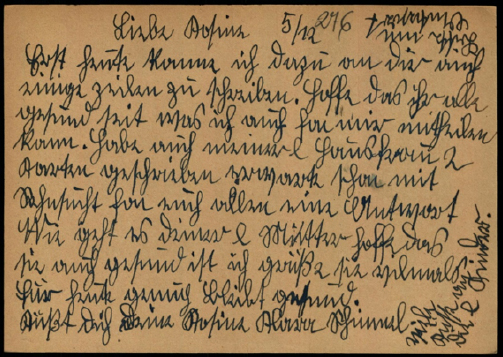 Liebe Rosine 5/12 276
Erst heute kanne ich dazu an dir auch
einige zeilen zu schreiben. Hoffe das ihr alle
gesund seit was ich auch fon mir mitteilen
kann. Habe auch meiner l Hausfrau 2
Karten geschrieben erwarte schon mit
Sehnsucht fon euch allen eine Antwort
Wie geht es deiner l Mutter hoffe das
sie auch gesund ist ich grüße sie vilmals
für heute genug bleibt gesund.
Küßt dich deine Rosine Klara Schimmel
viele
Küsse an
die l Kinder.